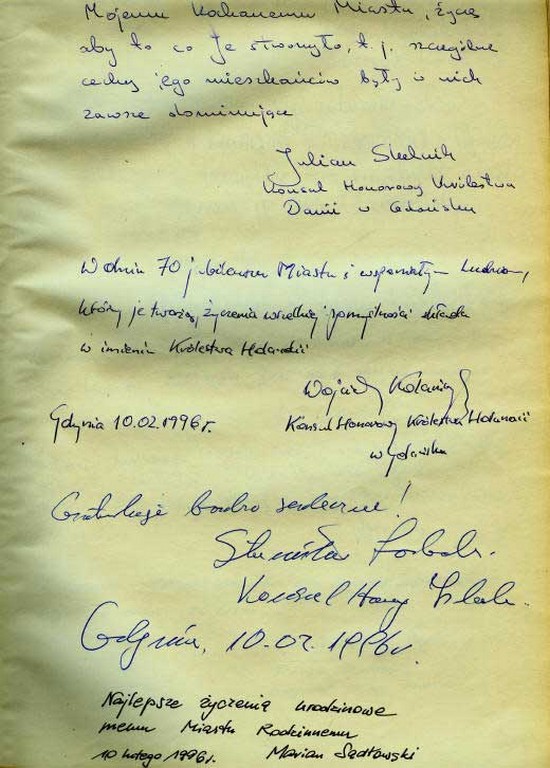 Mojemu Kochanemu Miastu, życzę
aby to co je stworzyło, t.j. szczególne
cechy jego mieszkańców były w nich
zawsze dominujące
Julian Skelnik
Konsul Honorowy Królestwa
Danii w Gdańsku
W dniu 70 jubileuszu Miastu i wspaniałym Ludziom,
którzy je tworzą, życzenia wszelkiej pomyślności składa
w imieniu Królestwa Holandii
Gdynia 10.02.1996r.
Wojciech
Konsul Honorowy Królestwa Holandii
w Gdańsku
Gratuluję bardzo serdecznie!
Stanisław
Konsul Hon.
Gdynia, 10.02.1996r.
Najlepsze życzenia urodzinowe
memu Miastu Rodzinnemu
10 lutego 1996r. Marian Sadłowski